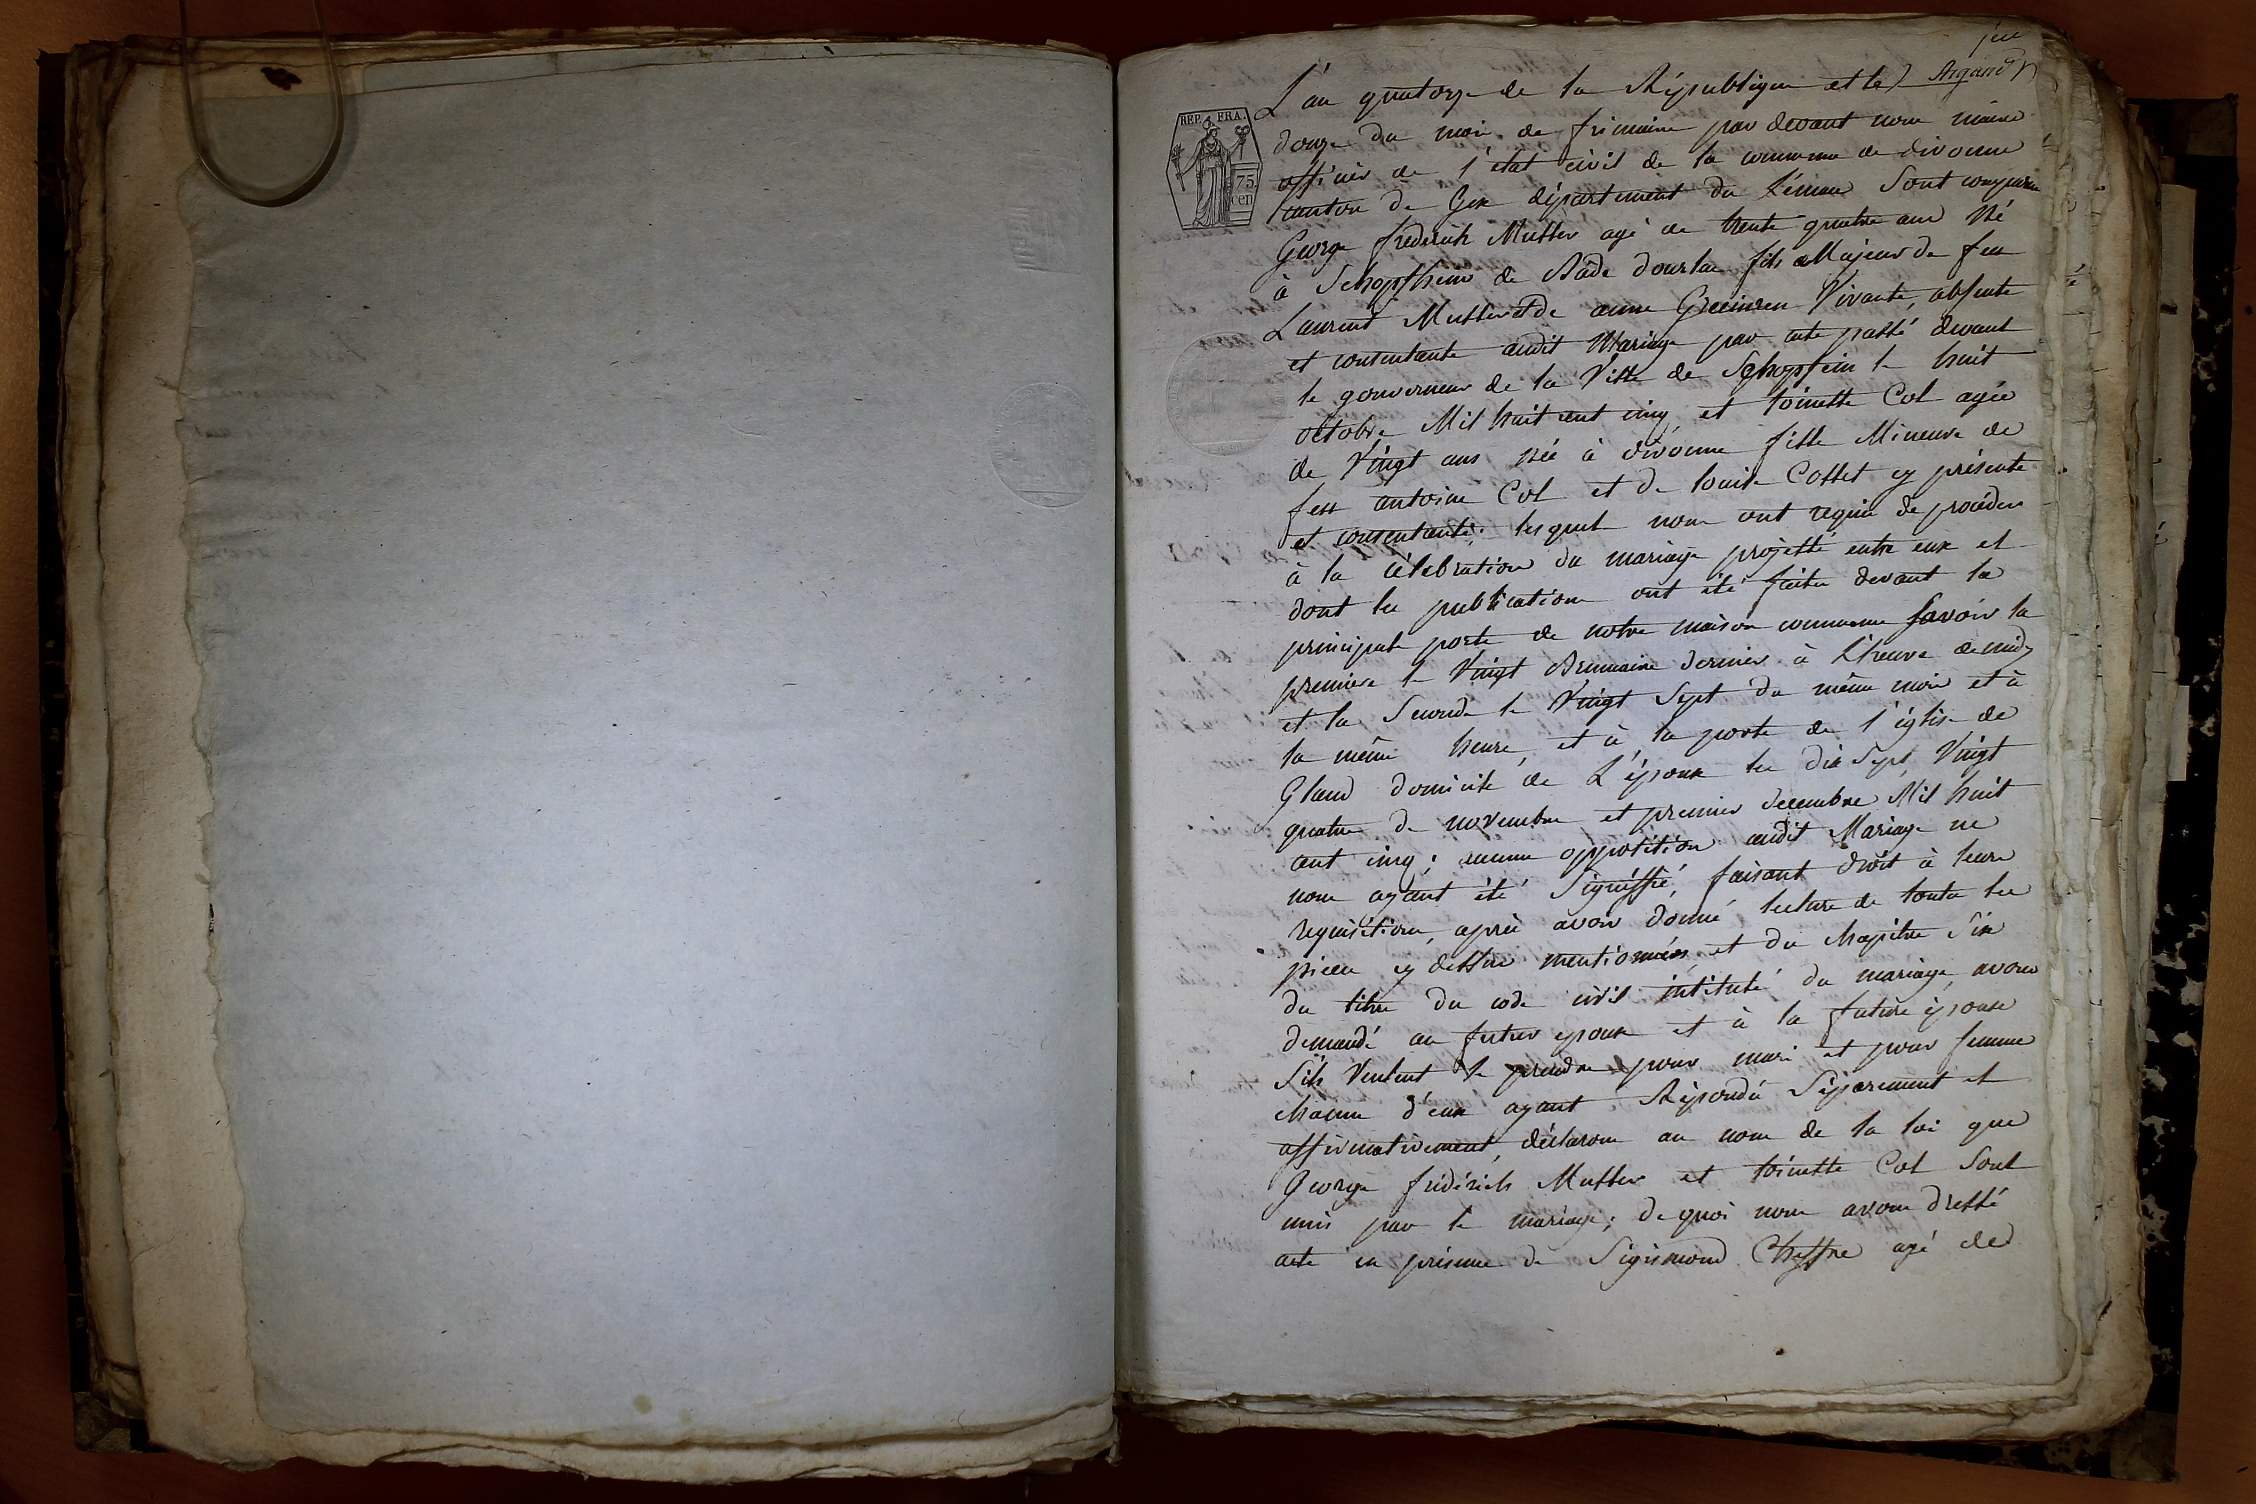 Argand
L'an quatorze de la République et le
REP. FRA.
75
cen
douze du mois de frimaire par devant nous maire
officier de l'état civil de la commune de divonne
canton de Gex département du Léman sont comparu
George frédérich Mutter agé de trente quatre ans né
à Schopfheim de Bade dourlac fils Majeur de feu
Laurent Mutter et de anne vivante, absente
et consentante audit Mariage par acte passé devant
le gouverneur de la Ville de Schopfein le huit
octobre Mil huit cent cinq et toinette Col agée
de Vingt ans née à divonne fille Mineure de
feu antoine Col et de louise Cottet cy présente
et consentante. lesquels nous ont requis de procéder
à la célébration du mariage projetté entre eux et
dont les publications ont été faites devant la
principale porte de notre maison commune savoir la
premiere le Vingt Brumaire dernier à L'heure de midy
et la Seconde le Vingt Sept du même mois et à
la même heure, et à la porte de l'église de
Gland domicile de L'époux les dix Sept, Vingt
quatre de novembre et premier decembre Mil huit
cent cinq; aucune opposition audit Mariage ne
nous ayant été Signiffié, faisant droit à leurs
requisitions, après avoir donné lecture de toutes les
pieces cy dessus mentionnées, et du chapitre Six
du titre du code civil intitulé du mariage, avons
demandé au futur epoux et à la future épouse
S'ils Veulent se prendre pour mari et pour femme
chacun d'eux ayant Répondu Séparement et
affirmativement, déclarons au nom de la loi que
George frédérich Mutter et toinette Col sont
unis par le mariage; de quoi nous avons dressé
acte en présence de Sigismond agé de